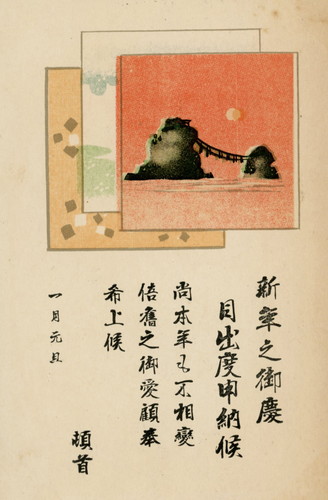 新年之御慶
目出度申納候
尚本年も不相變
倍舊之御愛顧奉
希上候
一月元旦
頓首